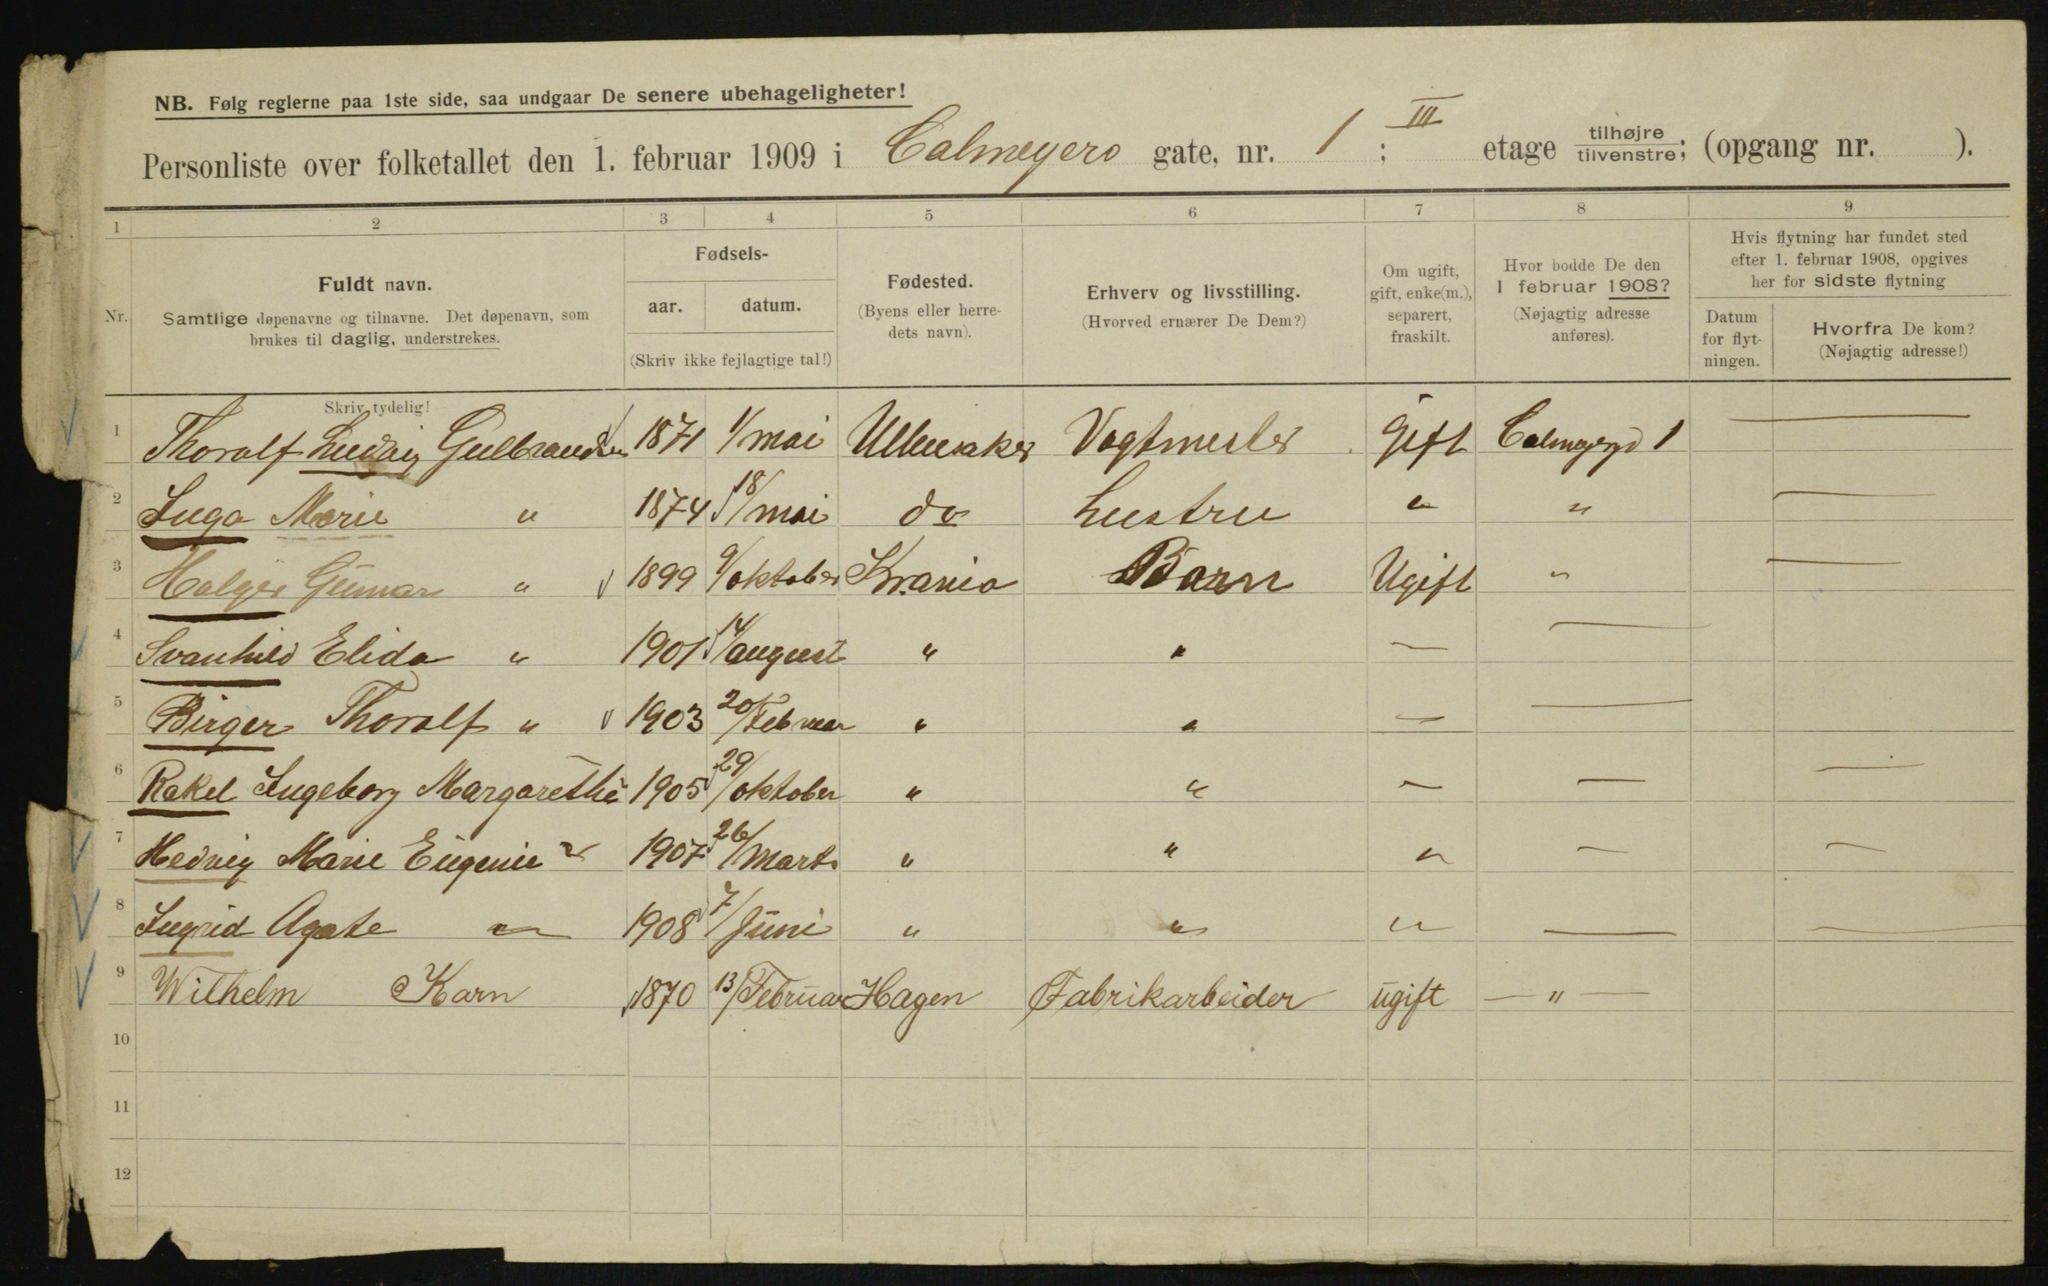 NB. Følg reglerne paa 1ste side, saa undgaar De senere ubehageligheter!
Personliste over folketallet den 1. februar 1909 i Calmeyers gate, nr. 1 ; III etage tilhøjre tilvenstre; (opgang nr. ).
1 2 3 4 5 6 7 8 9
Nr.
Fuldt navn.
Samtlige døpenavne og tilnavne. Det døpenavn, som
brukes til daglig, understrekes.
Skriv tydelig!
Fødsels-
aar. datum.
(Skriv ikke fejlagtige tal!)
Fødested.
(Byens eller herre-
dets navn).
Erhverv og livsstilling.
(Hvorved ernærer De Dem?)
Om ugift,
gift, enke(m.),
separert,
fraskilt.
Hvor bodde De den
1 februar 1908?
(Nøjagtig adresse
anføres).
Hvis flytning har fundet sted
efter 1. februar 1908, opgives
her for sidste flytning
Datum
for flyt-
ningen.
Hvorfra De kom?
(Nøjagtig adresse!)
1 Thoralf Ludvig Gulbrandsen 1871 1/mai Ullensaker Vogtmester Gift 1 —
2 Inga Marie " 1874 18/mai do Hustru " " —
3 Holger Gunnar " 1899 9/oktober Kr.ania Barn Ugift " —
4 Svanhild Elida " 1901 14/august " " — —
5 Birger Thoralf " 1903 20/Februar " " — —
6 Rakel Ingeborg Margarethe 1905 29/oktober " " — — —
7 Hedvig Marie Eugenie " 1907 26/Marts " " " — —
8 Ingrid Agate " 1908 7/Juni " " " — —
9 Wilhelm Karn 1870 13/Februar Hagen Fabrikarbeider ugift — " —
10
11
12